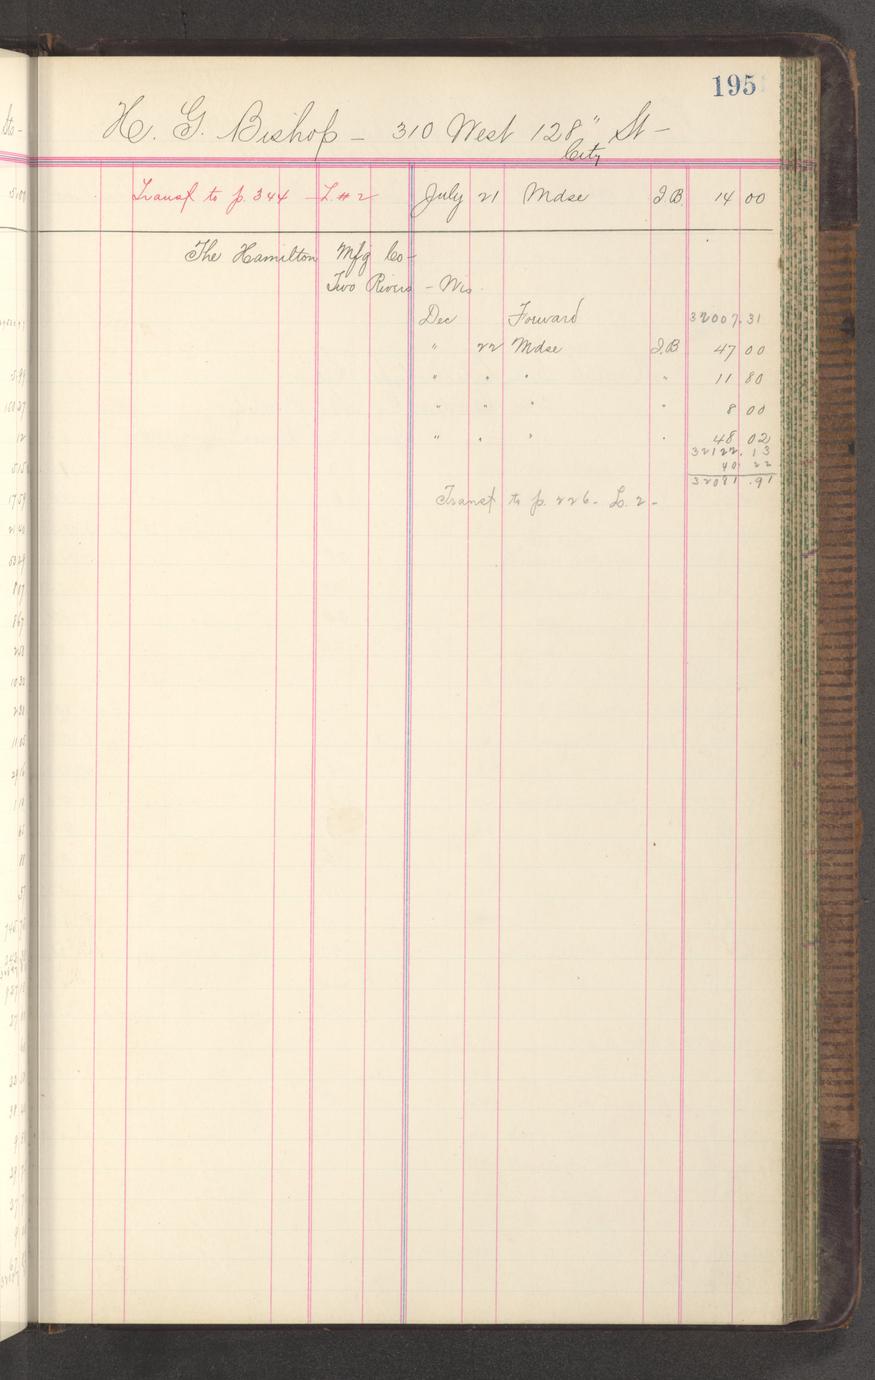 195
H. G. Bishop - 310 West 128" St -
City
Transf to p. 344 - L # 2 July 21 Mdse I.B. 14 00
The Hamilton Mfg Co -
Two Rivers - Wis.
Dec Forward 32007.31
" 22 Mdse I.B 47 00
" " " " 11 80
" " " " 8 00
" " " " 48 02
32122.13
40 22
32081.91
Transf to p. 226 - L. 2 -